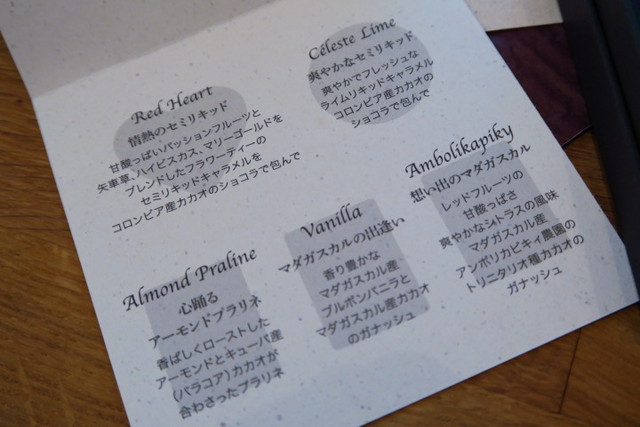 Red Heart
情熱のセミリキッド
甘酸っぱいパッションフルーツと
矢車草、ハイビスカス、マリーゴールドを
ブレンドしたフラワーティーの
セミリキッドキャラメルを
コロンビア産カカオのショコラで包んで
Céleste Lime
爽やかなセミリキッド
爽やかでフレッシュな
ライムリキッドキャラメル
コロンビア産カカオの
ショコラで包んで
Almond Praline
心踊る
アーモンドプラリネ
香ばしくローストした
アーモンドとキューバ産
(バラコア)カカオが
合わさったプラリネ
Vanilla
マダガスカルの出逢い
香り豊かな
マダガスカル産
ブルボンバニラと
マダガスカル産カカオ
のガナッシュ
Ambolikapiky
想い出のマダガスカル
レッドフルーツの
甘酸っぱさ
爽やかなシトラスの風味
マダガスカル産
アンボリカピキィ農園の
トリニタリオ種カカオの
ガナッシュ